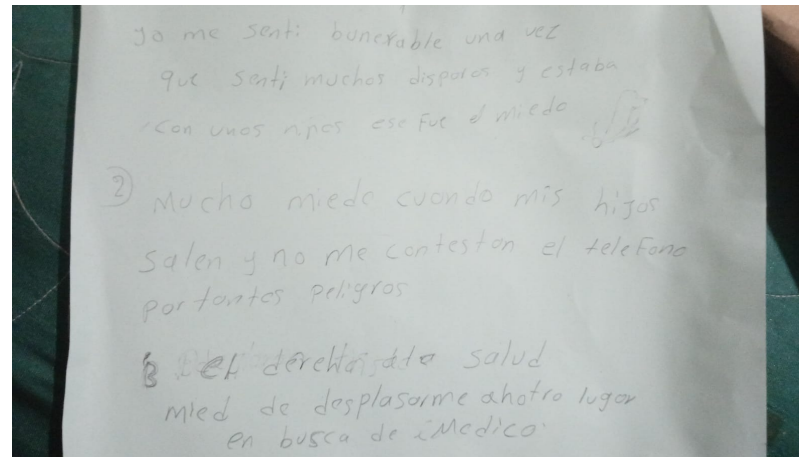 yo me senti bunerable una vez
que senti muchos disparos y estaba
con unos niños ese fue el miedo
2 Mucho miedo cuando mis hijos
salen y no me contestan el telefono
por tantos peligros
3 el derecho salud
mied de desplasarme ahotro lugar
en busca de Medico